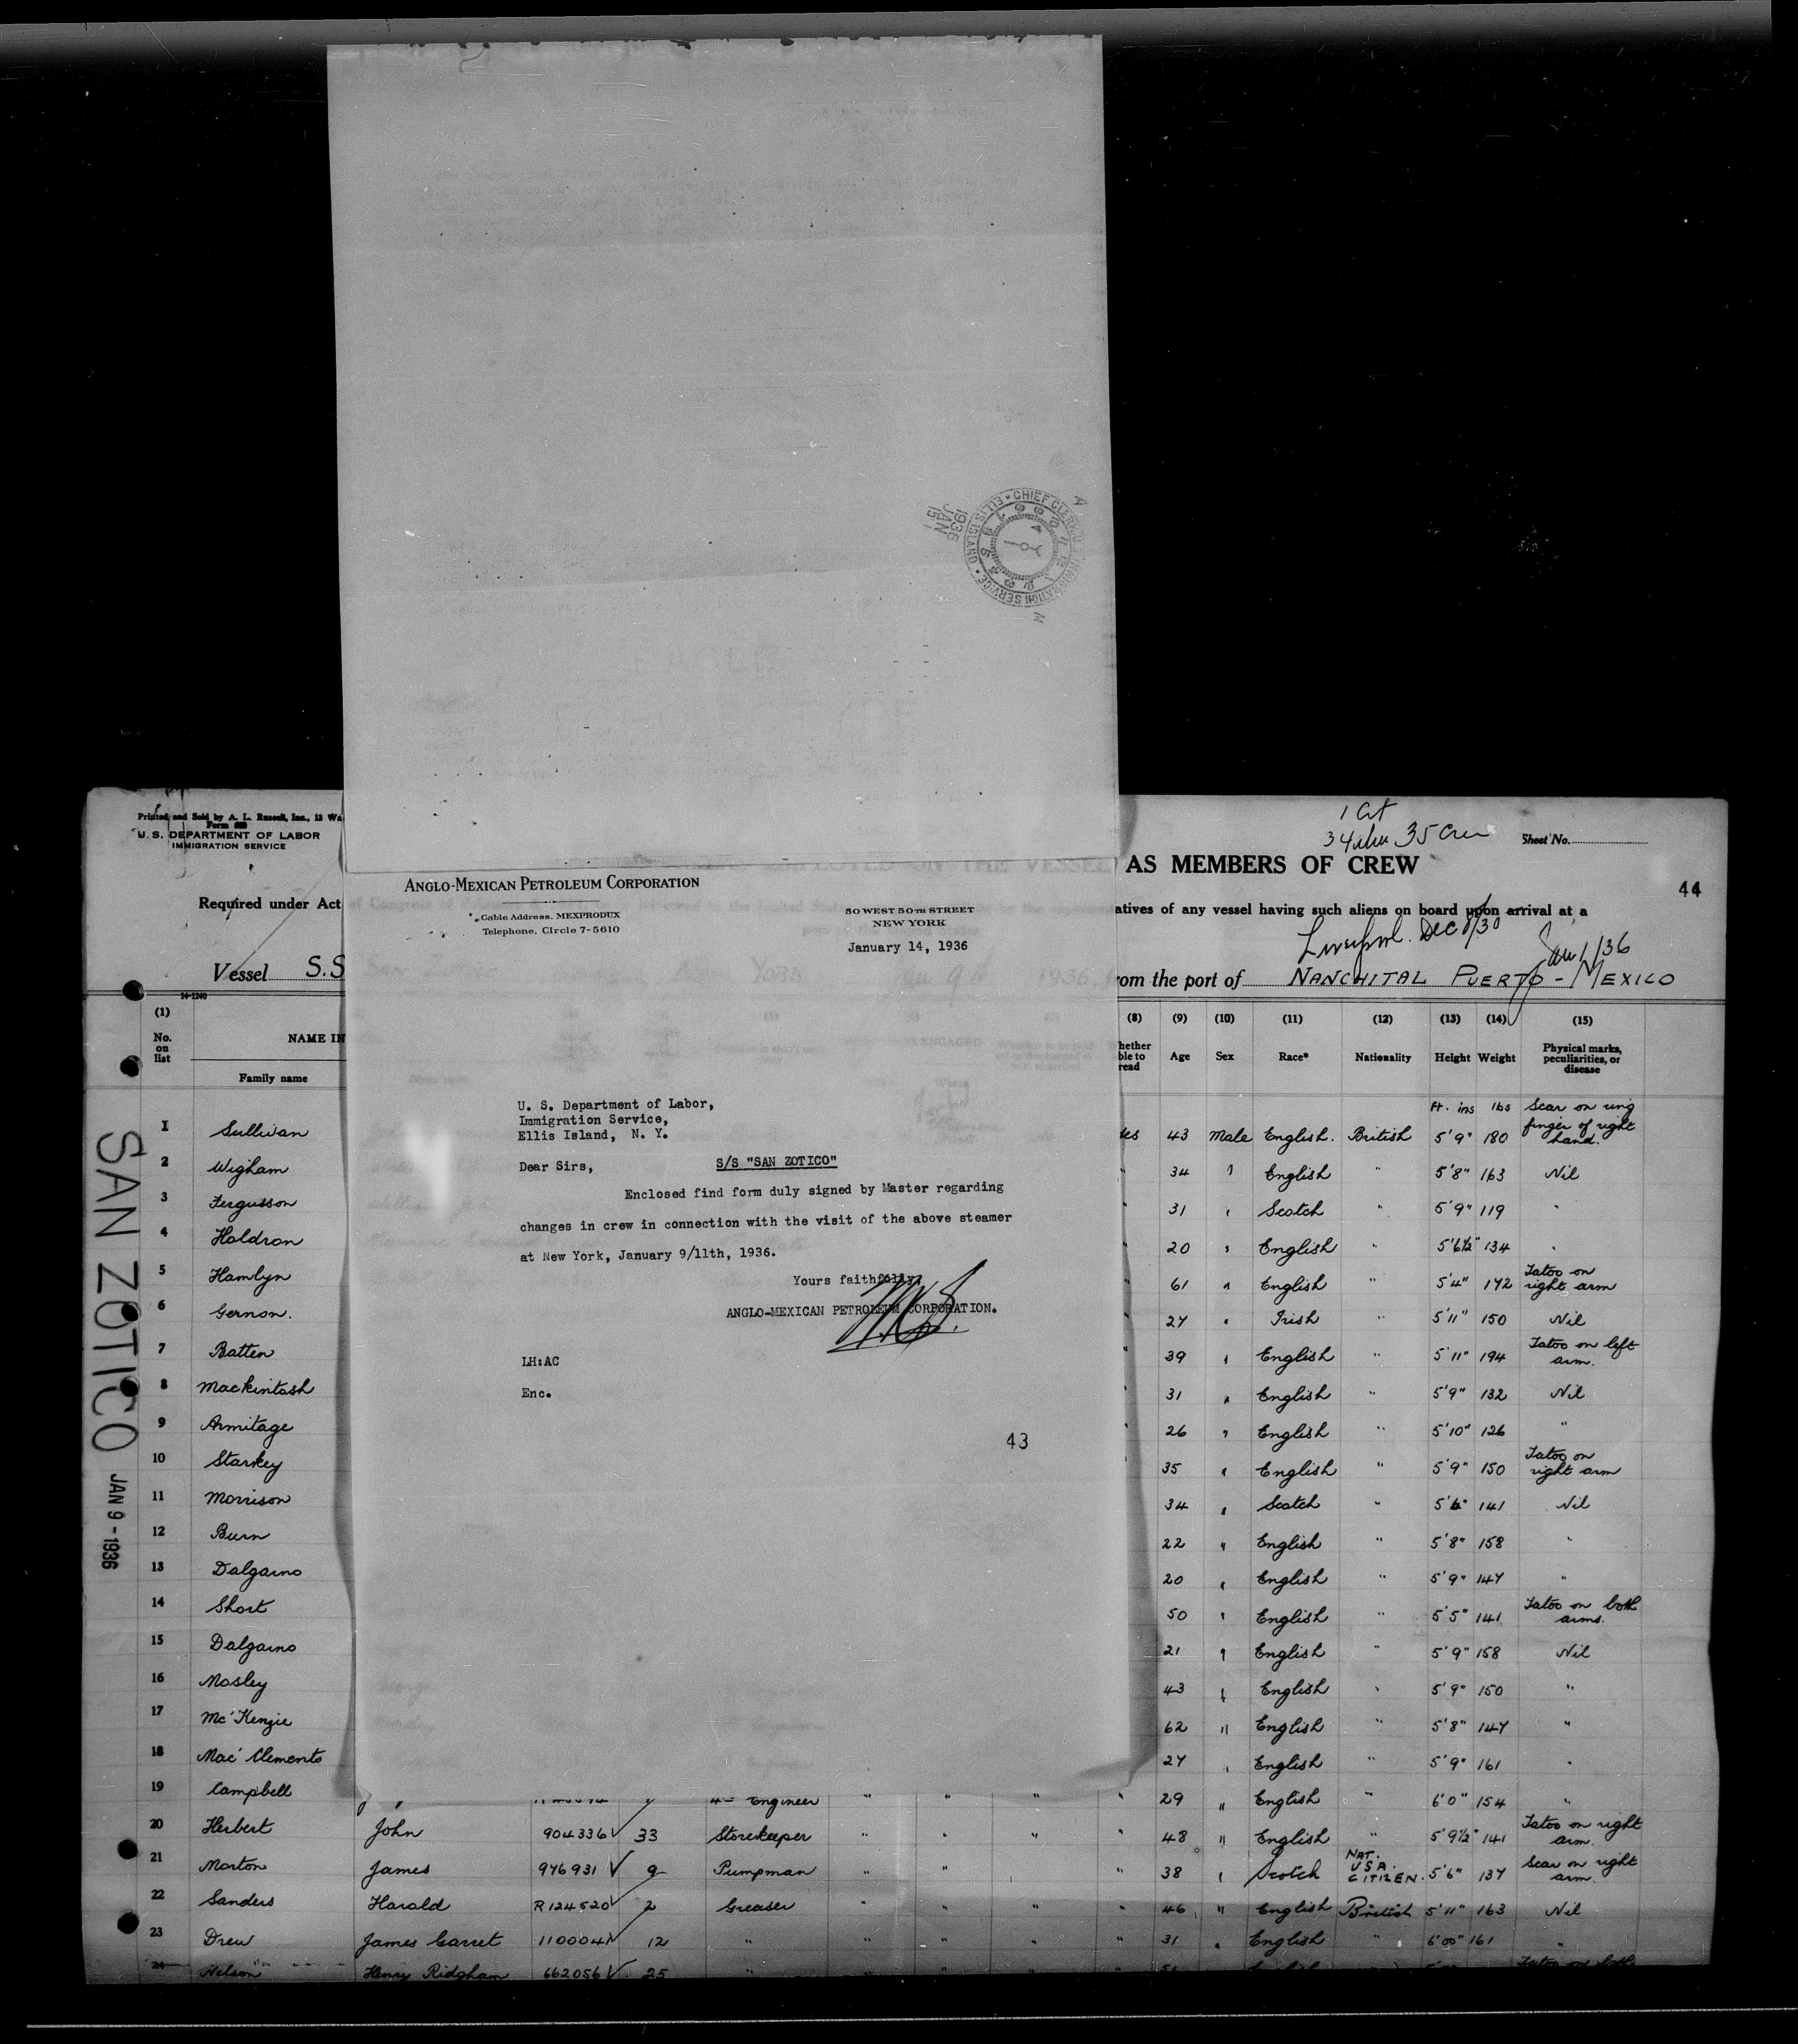 CHIEF CLERK
IMMIGRATION SERVICE
ELLIS ISLAND
1936
JAN
15
A
M
Printed and Sold by A. L. Russell, Inc., 13 Wa
U. S. DEPARTMENT OF LABOR
IMMIGRATION SERVICE
35 Crew
Sheet No.
AS MEMBERS OF CREW
44
Required under Act
atives of any vessel having such aliens on board upon arrival at a
Liverpool. Dec
Jan 1/36
Vessel S.S
rom the port of NANCHITAL PUERTO - MEXICO
14-1240
ANGLO-MEXICAN PETROLEUM CORPORATION
Cable Address. MEXPRODUX
Telephone, Circle 7-5610
50 WEST 50TH STREET
NEW YORK
January 14, 1936
U. S. Department of Labor,
Immigration Service,
Ellis Island, N. Y.
Dear Sirs, S/S "SAN ZOTICO"
Enclosed find form duly signed by Master regarding
changes in crew in connection with the visit of the above steamer
at New York, January 9/11th, 1936.
Yours faithfully,
ANGLO-MEXICAN PETROLEUM CORPORATION.
LH:AC
Enc.
43
SAN ZOTICO
JAN 9 - 1936
(1) (8) (9) (10) (11) (12) (13) (14) (15)
No. on list NAME IN hether ble to read Age Sex Race* Nationality Height Weight Physical marks, peculiarities, or disease
Family name
Ft. ins lbs
1 Sullivan 43 Male English. British 5'9" 180 Scar on ring finger of right hand.
2 Wigham " 34 " English " 5'8" 163 Nil
3 Fergusson " 31 " Scotch " 5'9" 119 "
4 Holdron " 20 " English " 5'6½" 134 "
5 Hamlyn " 61 " English " 5'4" 172 Tatoo on right arm
6 Gernon. " 27 " Irish " 5'11" 150 Nil
7 Batten " 39 " English " 5'11" 194 Tatoo on left arm.
8 Mackintosh " 31 " English " 5'9" 132 Nil
9 Armitage " 26 " English " 5'10" 126 "
10 Starkey 35 " English " 5'9" 150 Tatoo on right arm
11 Morrison 34 " Scotch " 5'6" 141 Nil
12 Burn 22 " English " 5'8" 158 "
13 Dalgarno 20 " English " 5'9" 147 "
14 Short 50 " English " 5'5" 141 Tatoo on both arms.
15 Dalgarno 21 " English " 5'9" 158 Nil
16 Mosley 43 " English " 5'9" 150 "
17 Mc'Kenzie 62 " English " 5'8" 147 "
18 Mac'Clements 27 " English " 5'9" 161 "
19 Campbell 4th Engineer " " " " 29 " English " 6'0" 154 "
20 Herbert John 904336 33 Storekeeper " " " " 48 " English " 5'9½" 141 Tatoo on right arm.
21 Morton James 976931 9 Pumpman " " " 38 " Scotch NAT. USA. CITIZEN. 5'6" 137 Scar on right arm.
22 Sanders Harold R124520 2 Greaser " " " " 46 " English British 5'11" 163 Nil
23 Drew James Garret 1100041 12 " " " " " 31 " English " 6'00" 161 "
24 Nelson Henry Ridgham 662056 25 "